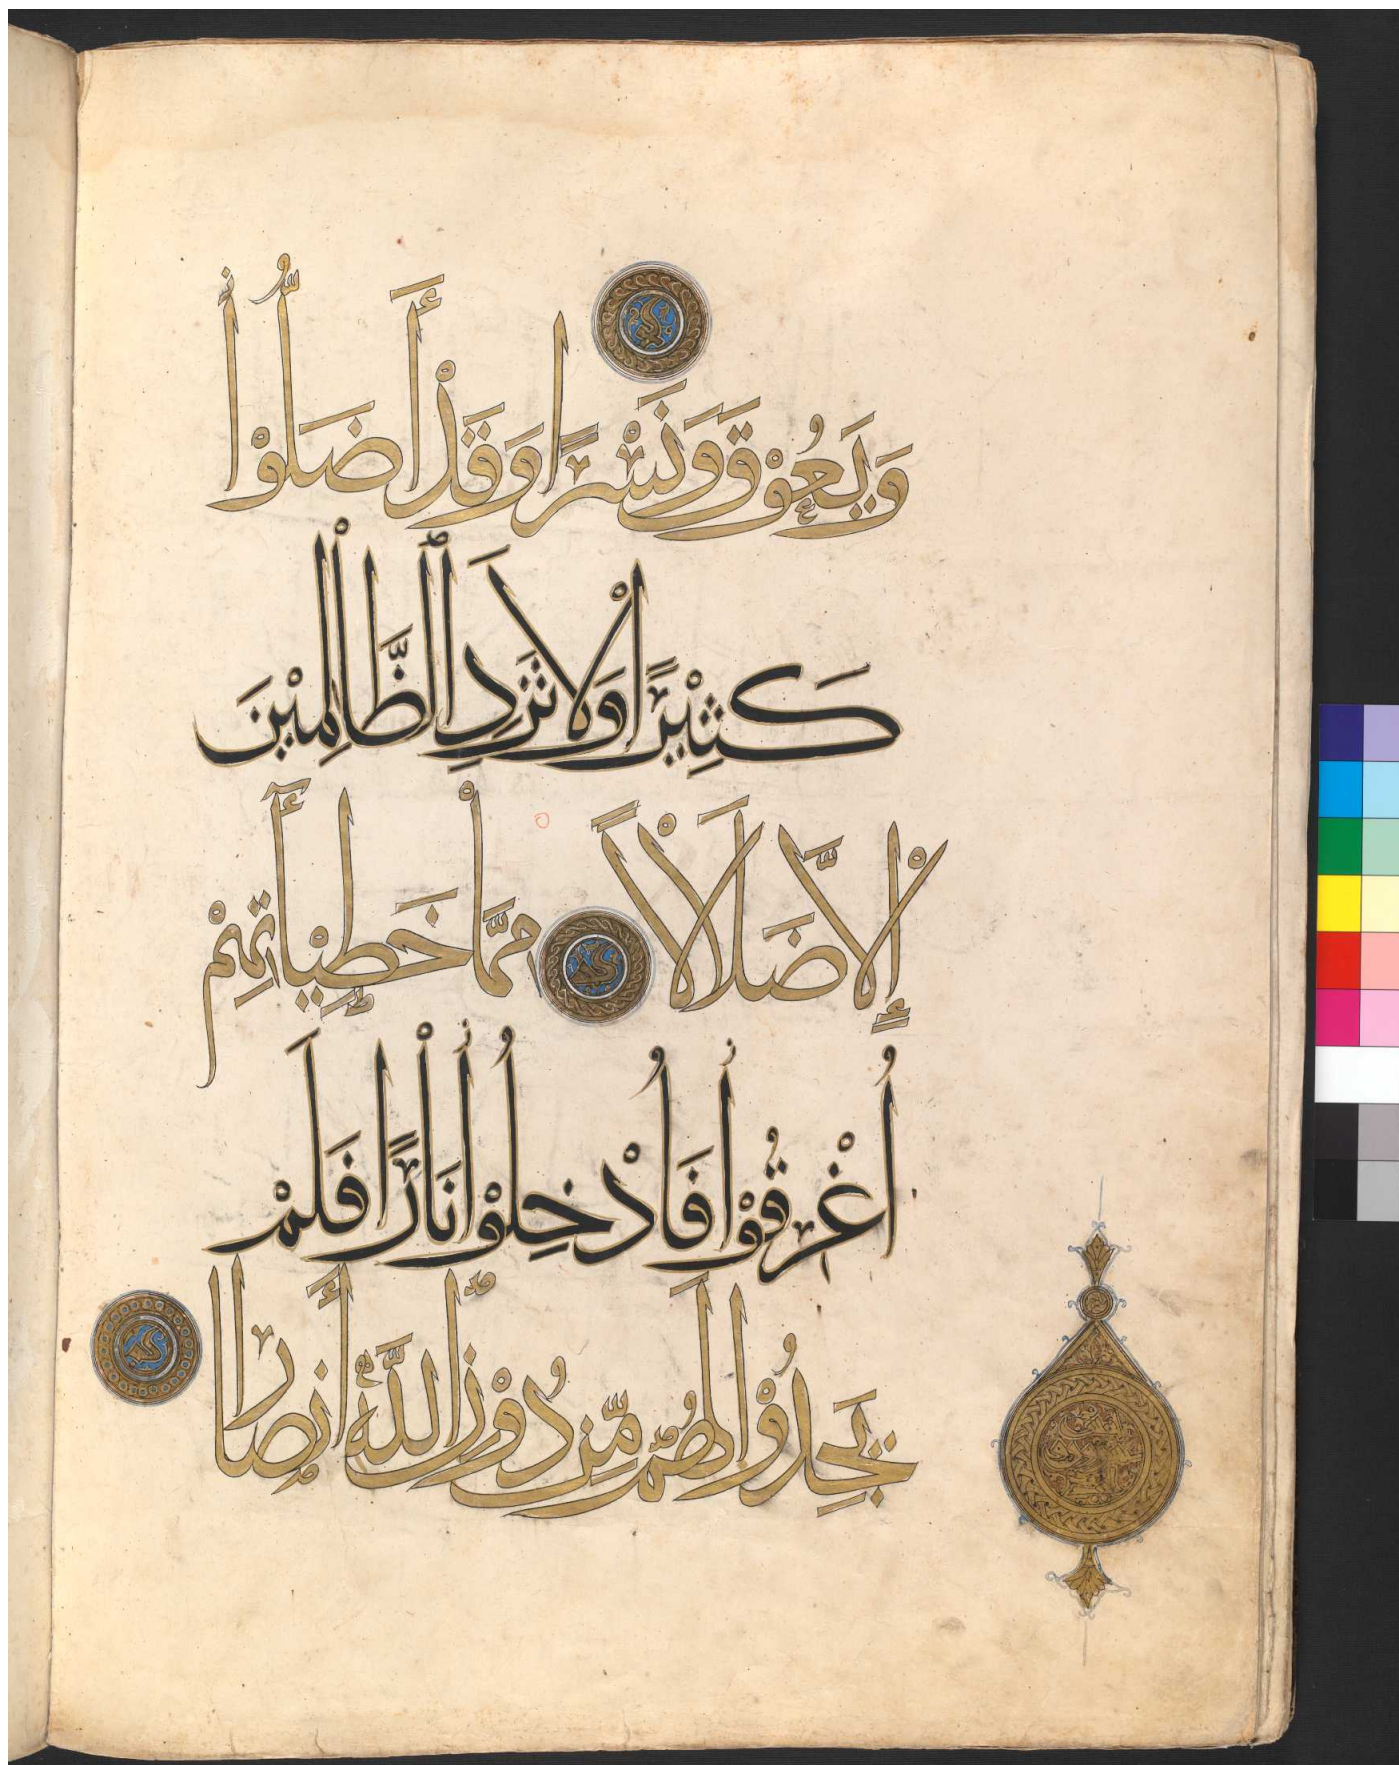 وَيَعُوْقَ وَنَسْرًا وَقَدْ أَضَلُّوْا
كَثِيْرًا وَلَا تَزِدِ الظَّالِمِيْنَ
إِلَّا ضَلَالًا مِمَّا خَطِيْآتِهِمْ
أُغْرِقُوْا فَأُدْخِلُوْا نَارًا فَلَمْ
يَجِدُوْا لَهُمْ مِّنْ دُوْنِ اللَّهِ أَنْصَارًا